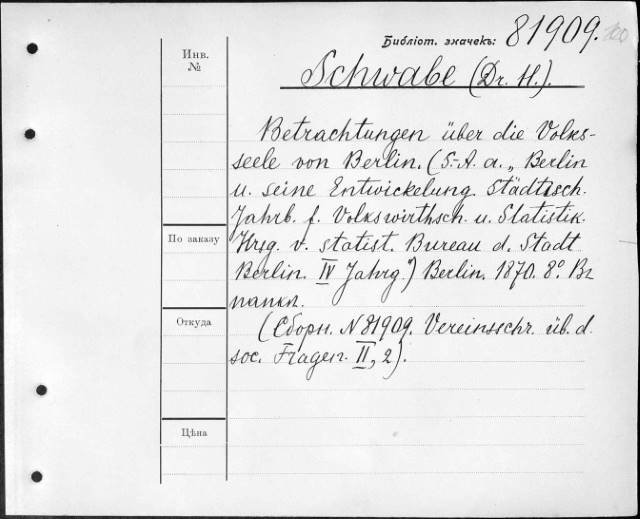 Библіот. значекъ: 81909. 100
Инв. №
Schwabe (Dr. H.).
Betrachtungen über die Volks-
seele von Berlin. (S.-A. a. „Berlin
u. seine Entwickelung. Städtisch.
Jahrb. f. Volkswirthsch. u. Statistik.
Hrsg. v. statist. Bureau d. Stadt
Berlin. IV Jahrg.") Berlin. 1870. 8°. Br
папкл.
(Сборн. N 81909. Vereinsschr. üb. d.
soc. Fragen. II, 2).
По заказу
Откуда
Цѣна